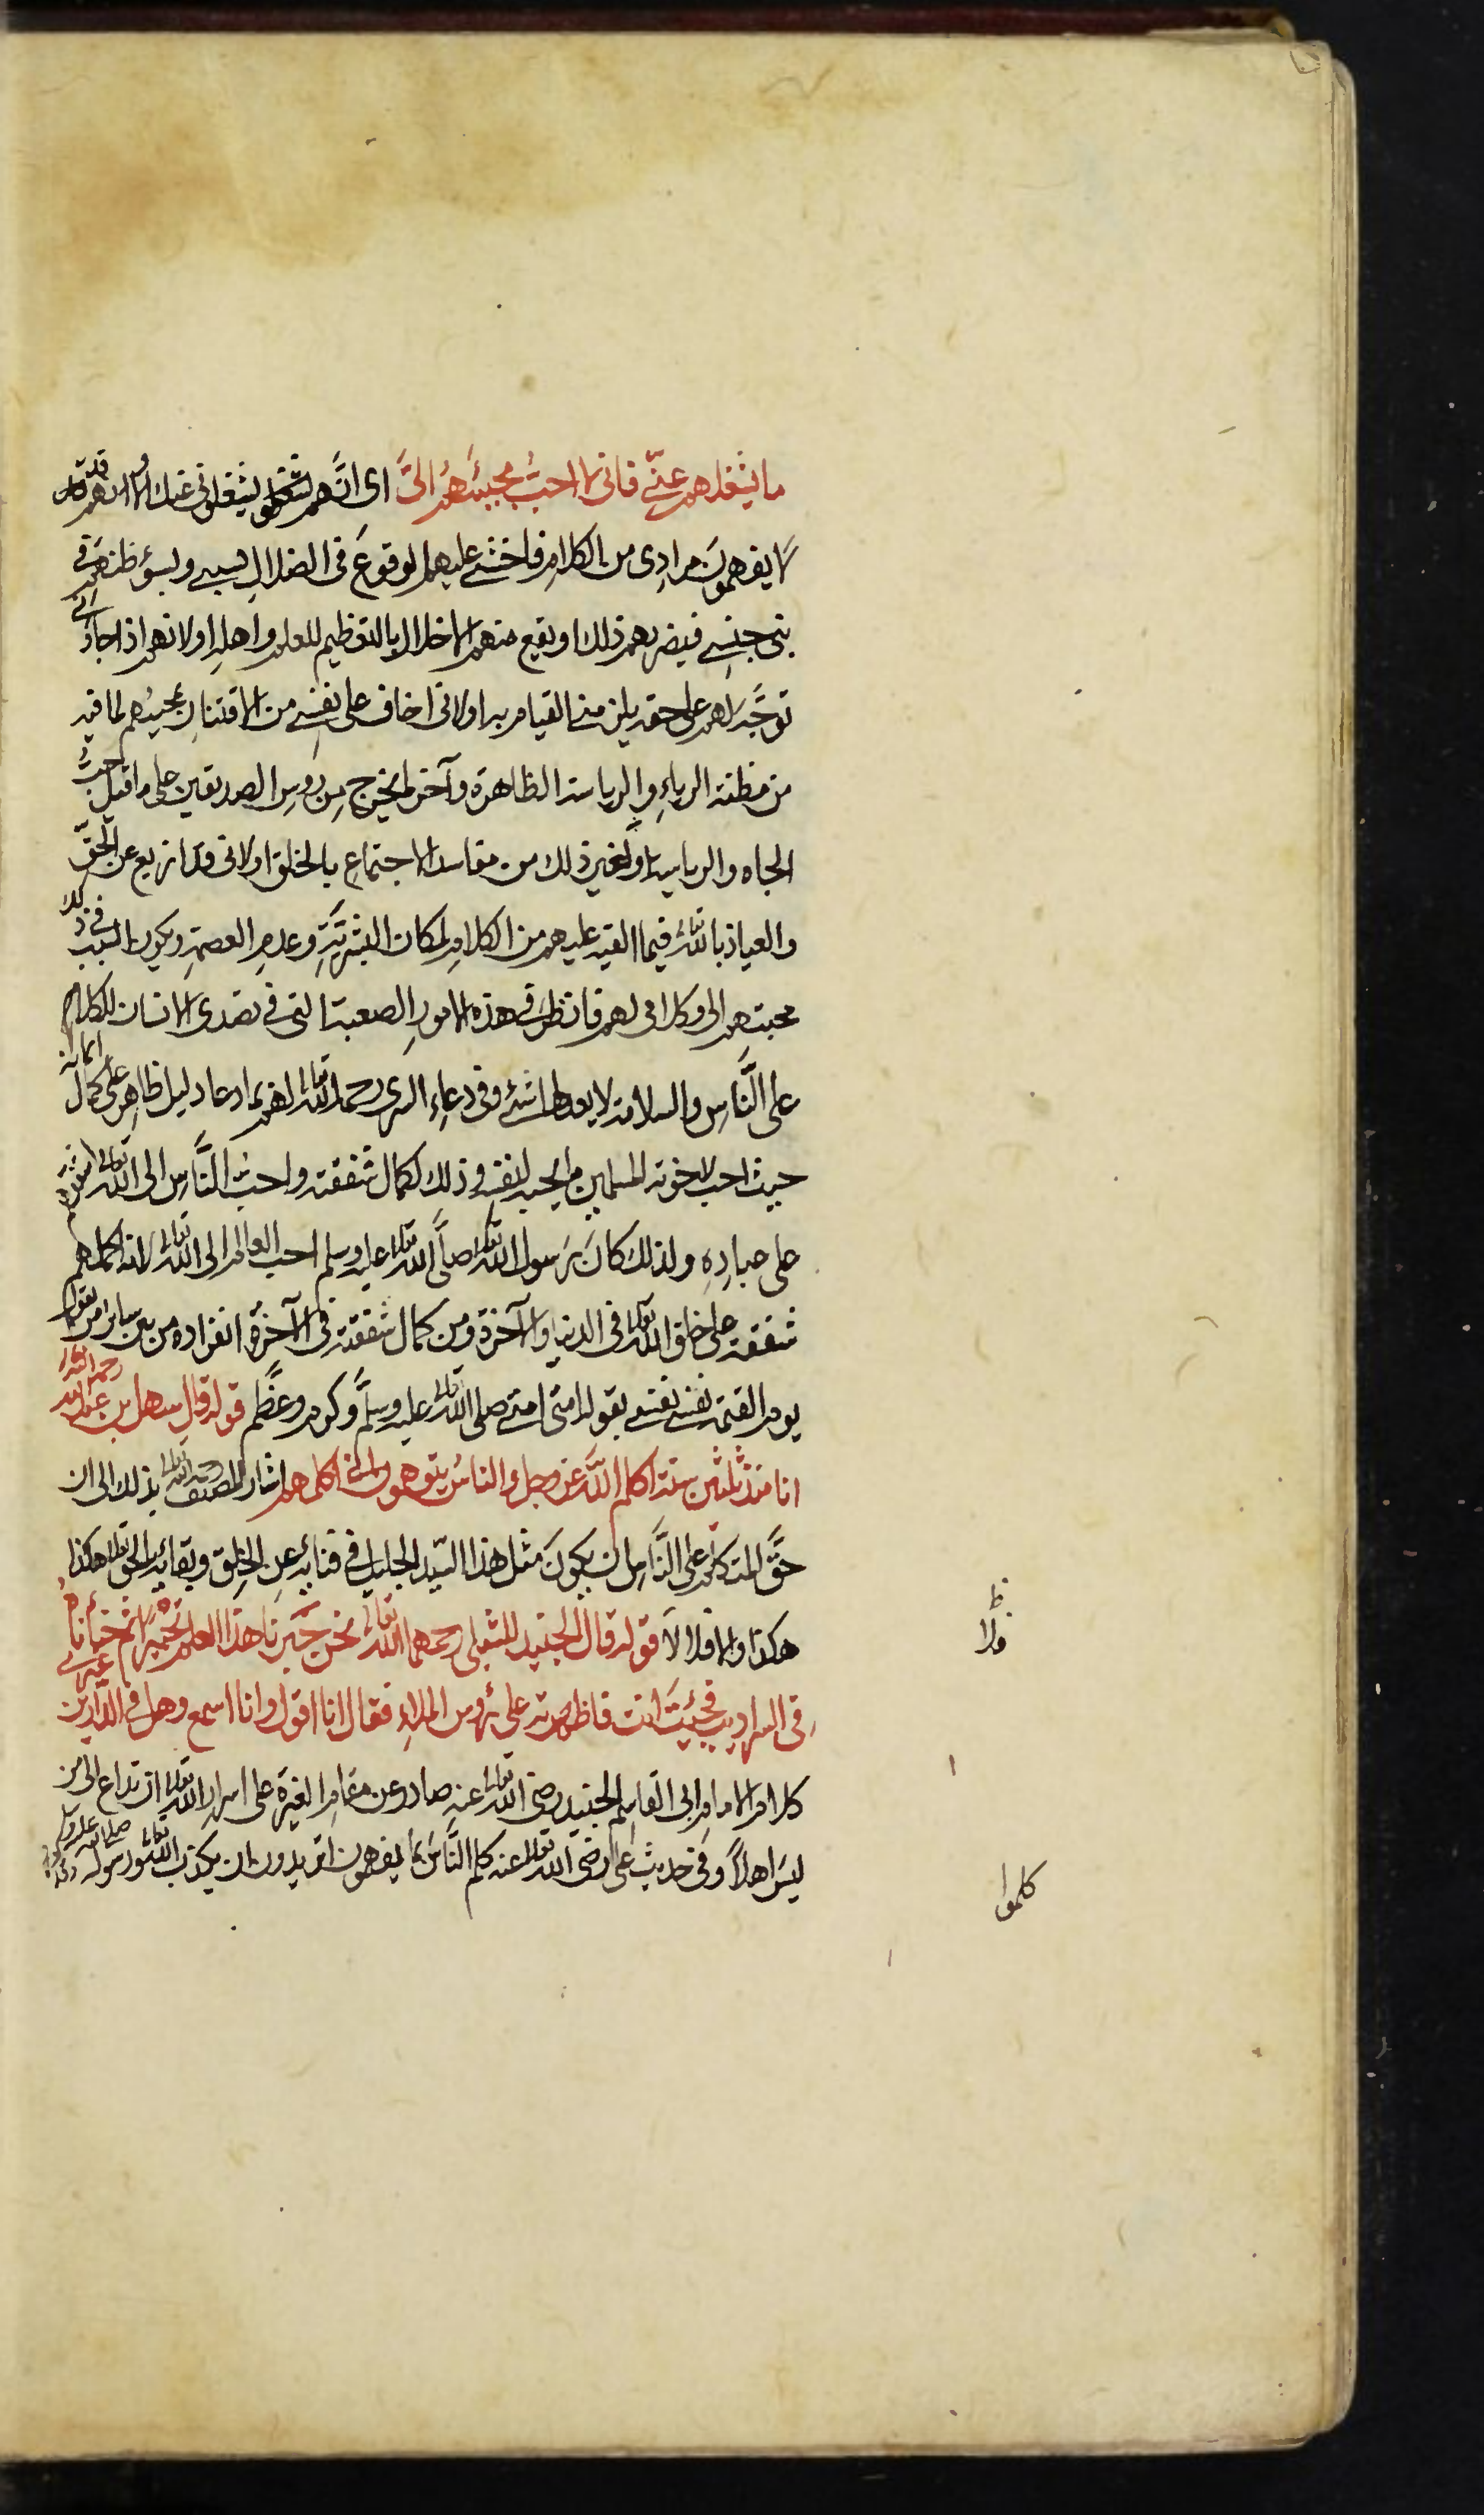 ما يشغلهم عنّي فانى لا احبّ مجيئهم الىّ اى انّهم يشغلونى عنك ولانهم قد
لا يفهمون مرادى من الكلام فاخشى عليهم الوقوع فى الضلال بسببى وبسؤ ظنهم فى
بنى جنسى فيضرهم ذلك او يقع منهم الاخلال بالتعظيم للعلم واهله او لانهم اذا جاؤا الى
توجّه لهم علىّ حق يلزمنى القيام به او لانى اخاف على نفسى من الافتتان بمجيئهم لما فيه
من مظنة الرياء والرياسة الظاهرة وآخر ما يخرج من رؤس الصديقين على ما قيل حبّ
الجاه والرياسة او لغير ذلك من مفاسد الاجتماع بالخلق او لانى قد ازيغ عن الحقّ
والعياذ بالله تعالى فيما القيه عليهم من الكلام لمكان البشريّة وعدم العصمة ويكون السبب فى ذلك
محبتهم الى وكلامى لهم فانظر فى هذه الامور الصعبة التى فى تصدى الانسان للكلام
على النّاس والسلامة لا يعدلها شئ وفى دعاء السرى رحمه الله تعالى لهم بما دعا دليل ظاهر على كمال ايمانه
حيث احب لاخوته المسلمين ما يحبه لنفسه وذلك لكمال شفقته واحبّ النّاس الى الله تعالى اشفقهم
على عباده ولذلك كان رسول الله تعالى صلّى الله تعالى عليه وسلم احب العالم الى الله تعالى لانه اكملهم
شفقة على خلق الله تعالى فى الدنيا والآخرة ومن كمال شفقته فى الآخرة انفراده من بين سائر من يقول
يوم القيمة نفسى نفسى بقوله امتى امتى صلى الله تعالى عليه وسلّم وكرم وعظّم قوله قال سهل بن عبد الله رحمه الله تعالى
انا منذ ثلثين سنة اكلم الله عز وجل والناس يتوهمون انى اكلمهم اشار المصنف رحمه الله تعالى بذلك الى ان
حقّ المتكلم على النّاس ان يكون مثل هذا السّيد الجليل فى فنائه عن الخلق وبقائه بالحق تعالى هكذا
هكذا والا فلا لا قوله قال الجنيد للشبلى رحمهما الله تعالى نحن حبّرنا هذا العلم تحبيرا ثم خبأناه
فى السراديب فجئت انت فاظهرته على رؤس الملاء فقال انا اقول وانا اسمع وهل فى الدارين غيرى
كلام الامام ابى القاسم الجنيد رضى الله تعالى عنه صادر عن مقام الغيرة على اسرار الله تعالى ان تذاع الى من
ليس اهلاً وفى حديث على رضى الله تعالى عنه كلم النّاس بما يفهمون اتريدون ان يكذب الله تعالى ورسوله صلى الله عليه وسلم
ظ
فلا
كلموا